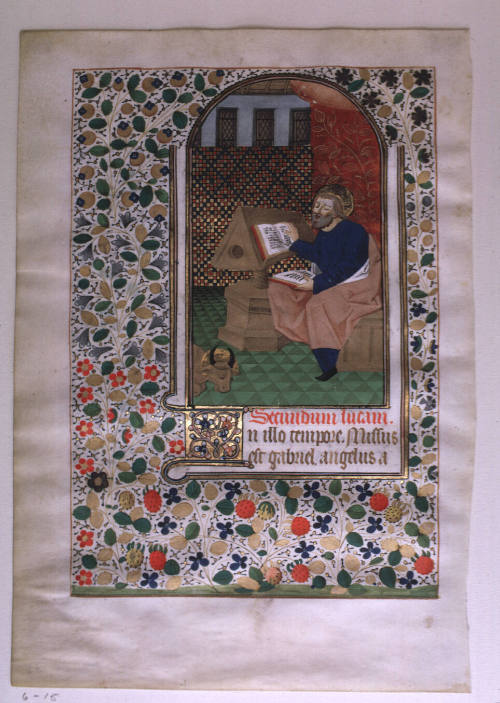 Secundum lucam.
In illo tempore. Missus
est gabriel angelus a
6-15